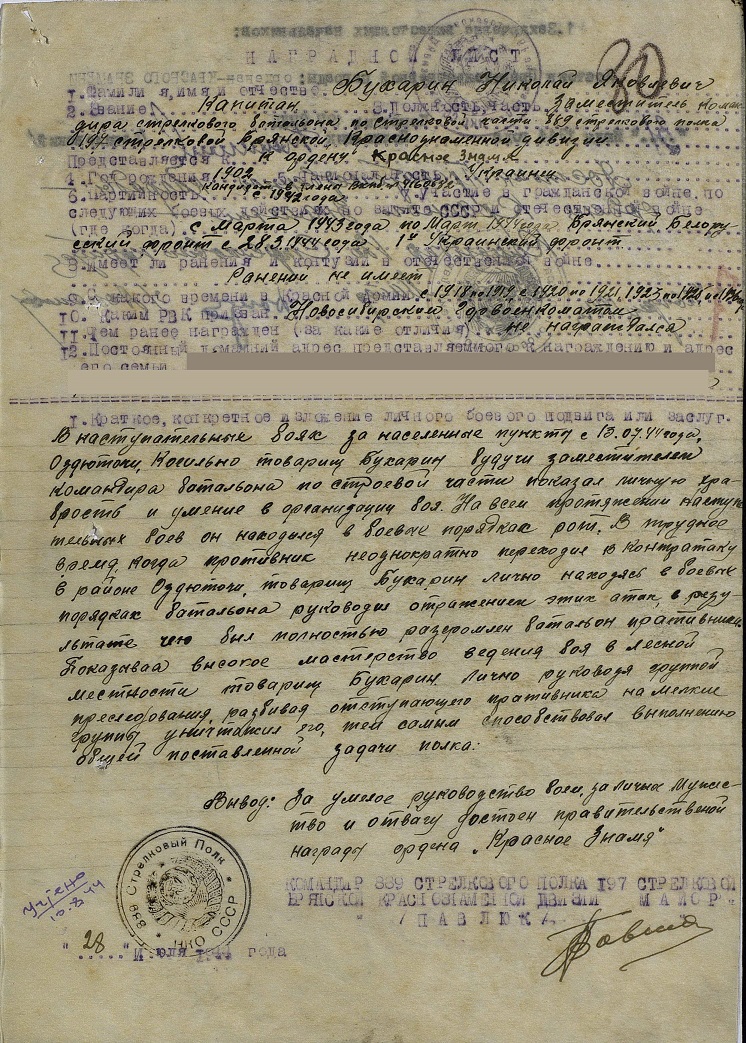 НАГРАДНОЙ ЛИСТ
30
1. Фамилия, имя и отчество Бухарин Николай Яковлевич
2. Звание Капитан 3. Должность, часть Заместитель коман-
дира стрелкового батальона по строевой части 889 стрелкового полка
197 стрелковой Брянской, Краснознаменной дивизии
Представляется к к ордену: Красное Знамя
4. Год рождения 1902 5. Национальность Украинец
6. Партийность кандидат в члены с 1942 года 7. Участие в гражданской войне, по
следующих боевых действиях по защите СССР и отечественной войне
(где когда) с Марта 1943 года по Март 1944 года, Брянский, Белору-
сский фронт с 28.3.1944 года 1й Украинский фронт.
8. Имеет ли ранения и контузии в отечественной войне
Ранений не имеет
9. С какого времени в Красной Армии с 1918 по 1919, с 1920 по 1921, 1925 по
10. Каким РВК призван Новосибирским горвоенкоматом
11. Чем ранее награжден (за какие отличия) не награждался
12. Постоянный домашний адрес представляемого к награждению и адрес
его семьи
1. Краткое, конкретное изложение личного боевого подвига или заслуг.
В наступательных боях за населенные пункты с 13.07.44 года,
Оздюточи, Косильно товарищ Бухарин будучи заместителем
командира батальона по строевой части показал личную хра-
бврость и умение в организации боя. На всем протяжении наступа
тельных боев он находился в боевых порядках рот. В трудное
время, когда противник неоднократно переходил в контратаку
в районе Оздюточи, товарищ Бухарин лично находясь в боевых
порядках батальона руководил отражением этих атак, в резу-
льтате чего был полностью разгромлен батальон пративника.
Показывая высокое мастерство ведения боя в лесной
местности товарищ Бухарин лично руководя группой
преследования, развивая отступающего пративника на мелкие
группы уничтожил его, тем самым способствовал выполнению
общей поставленной задачи полка.
Вывод: За умелое руководство боем, за личное Мужес-
тво и отвагу достоен правительственой
награды ордена „Красное Знамя"
КОМАНДИР 889 СТРЕЛКОВОГО ПОЛКА 197 СТРЕЛКОВОЙ
БРЯНСКОЙ КРАСНОЗНАМЕНОЙ ДИВИЗИИ МАЙОР
/ПАВЛЮК/
889 Стрелковый Полк
НКО СССР
Учтено
10.8.44
"28" Июля 1944 года